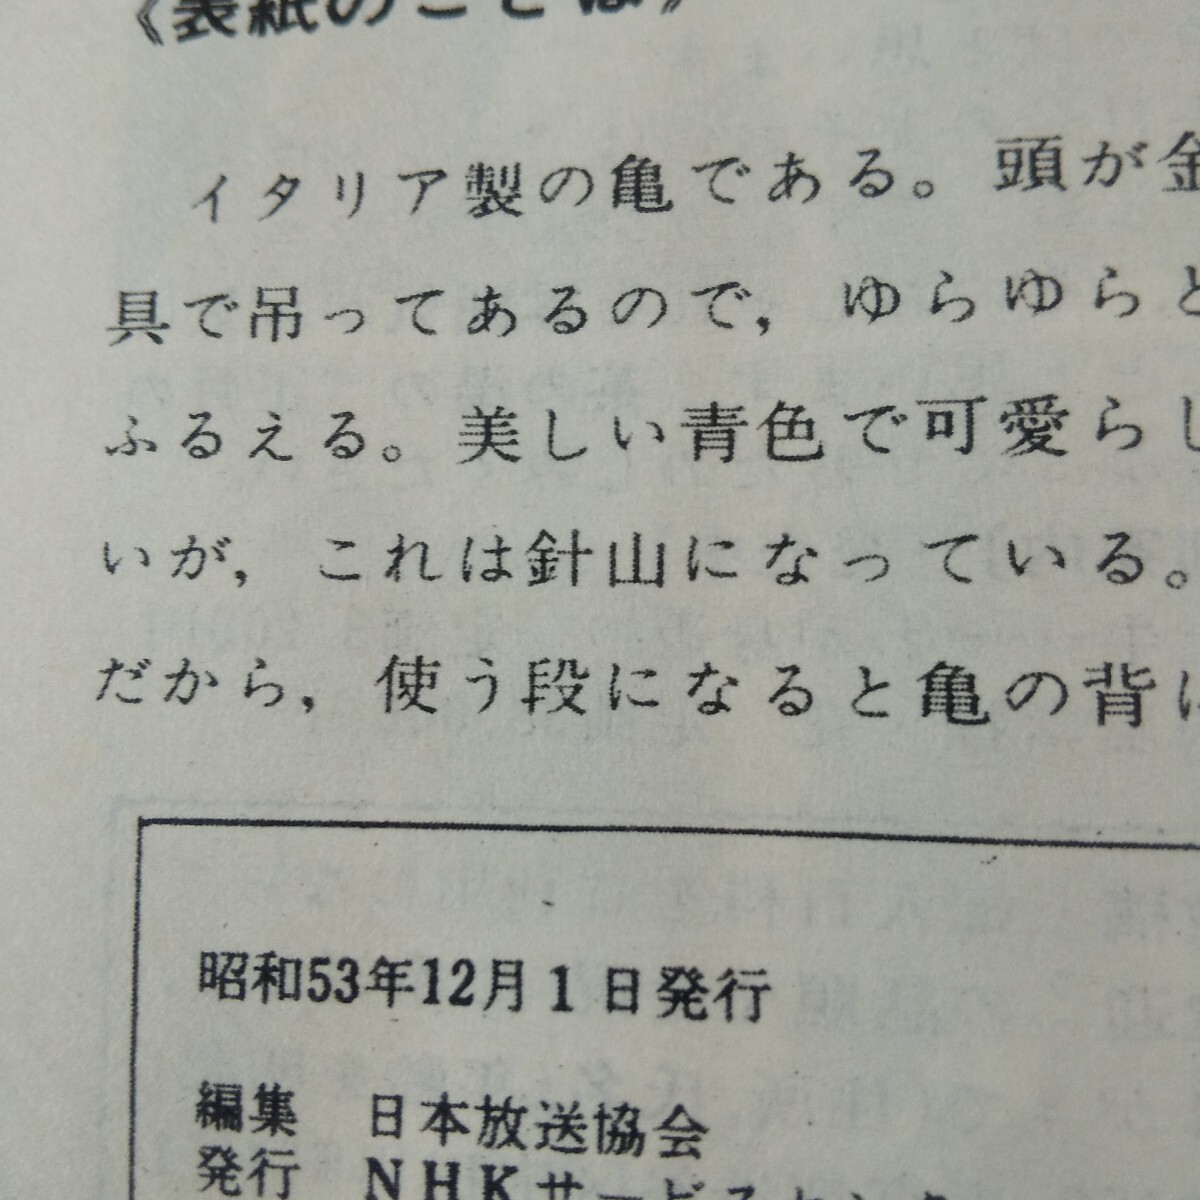 《表紙のことば》
イタリア製の亀である。頭が金
具で吊ってあるので，ゆらゆらと
ふるえる。美しい青色で可愛らし
いが，これは針山になっている。
だから，使う段になると亀の背に
昭和53年12月1日発行
編集 日本放送協会
発行 NHKサービスセンター